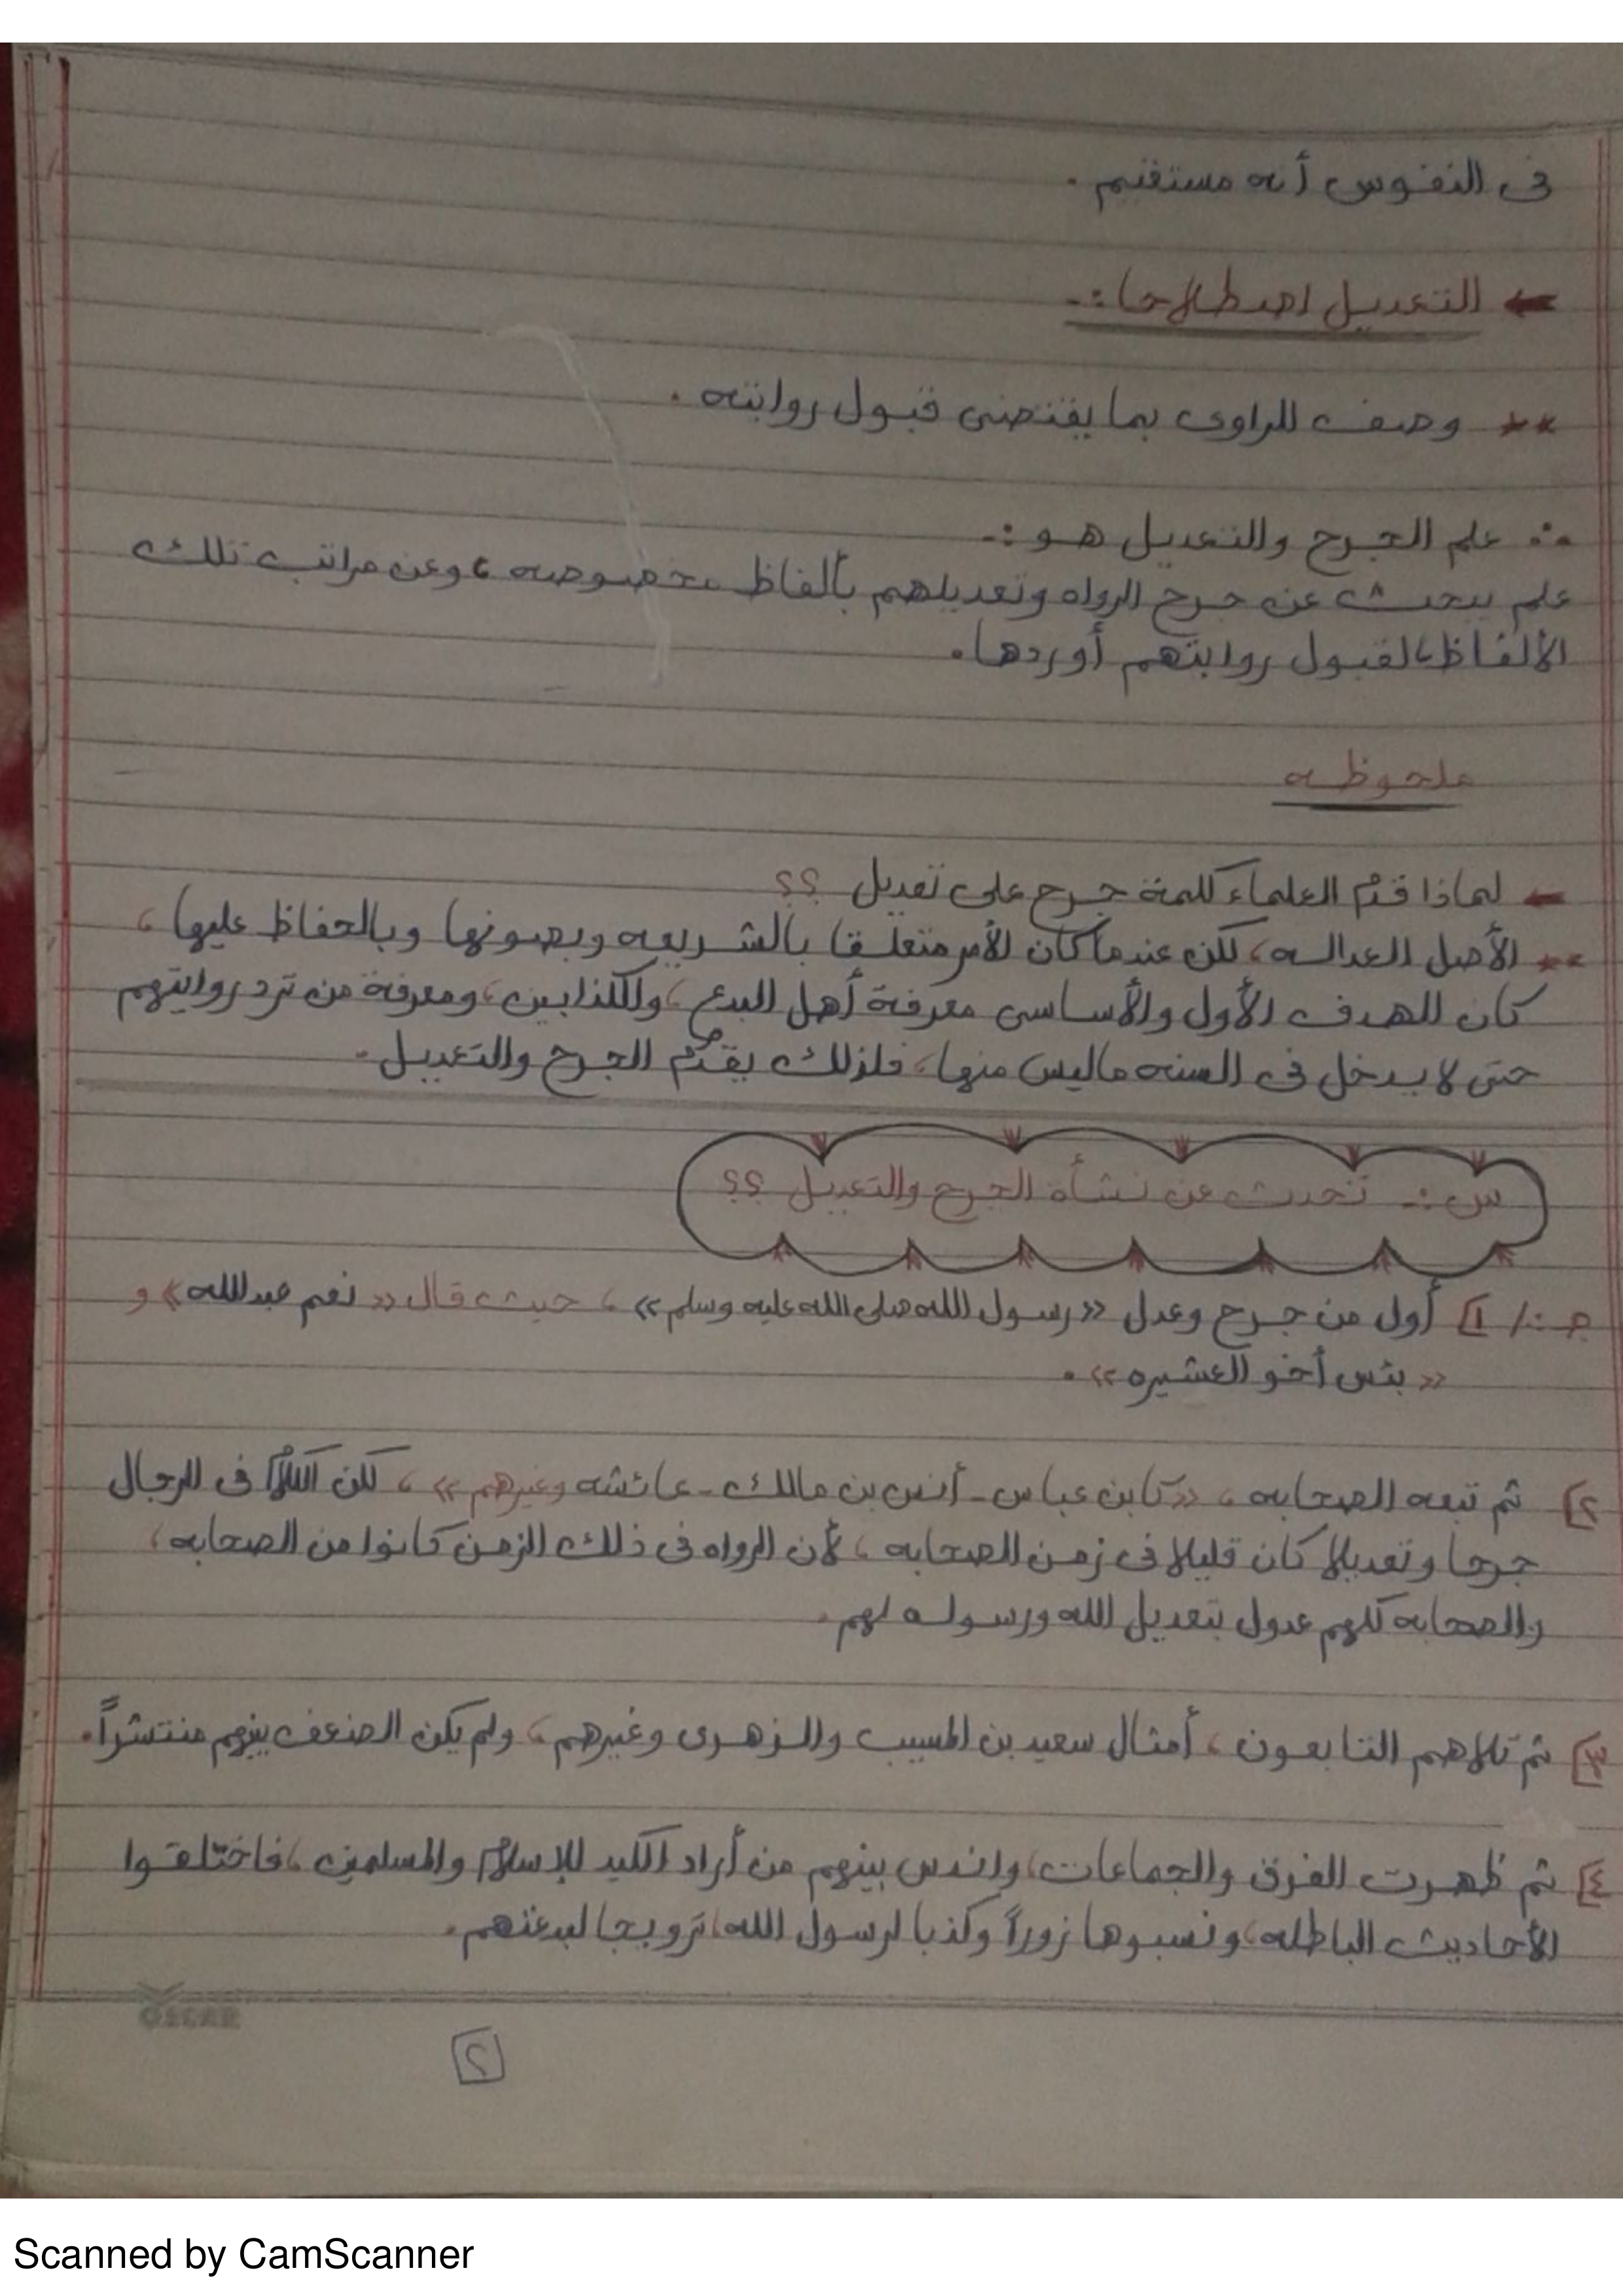 فى النفوس أنه مستقيم .
← التعديل اصطلاحا :-
** وصف للراوى بما يقتضى قبول روايته .
∴ علم الجرح والتعديل هو :-
علم يبحث عن جرح الرواه وتعديلهم بألفاظ مخصوصه ، وعن مراتب تلك
الألفاظ، لقبول روايتهم أو ردها.
ملحوظه
← لماذا قدم العلماء كلمة جرح على تعديل ؟؟
** الأصل العداله ، لكن عندما كان الأمر متعلقا بالشريعه وبصونها وبالحفاظ عليها ،
كان الهدف الأول والأساسى معرفة أهل البدع ، والكذابين ، ومعرفة من ترد روايتهم
حتى لا يدخل فى السنه ماليس منها ، فلذلك يقدَّم الجرح والتعديل .
س :- تحدث عن نشأه الجرح والتعديل ؟؟
جـ :/ 1] أول من جرح وعدل «رسول الله صلى الله عليه وسلم» ، حيث قال « نعم عبدالله » و
« بئس أخو العشيره » .
٢] ثم تبعه الصحابه ، «كابن عباس - أنس بن مالك - عائشه وغيرهم » ، لكن الكلام فى الرجال
جرحا وتعديلا كان قليلا فى زمن الصحابه ، لأن الرواه فى ذلك الزمن كانوا من الصحابه ،
والصحابه كلهم عدول بتعديل الله ورسوله لهم .
٣] ثم تلاهم التابعون ، أمثال سعيد بن المسيب والزهرى وغيرهم ، ولم يكن الضعف بينهم منتشراً .
٤] ثم ظهرت الفرق والجماعات ، واندس بينهم من أراد الكيد للإسلام والمسلمين ، فاختلقوا
الأحاديث الباطله ، ونسبوها زوراً وكذبا لرسول الله ، ترويجا لبدعتهم .
OSCAR
٢
Scanned by CamScanner